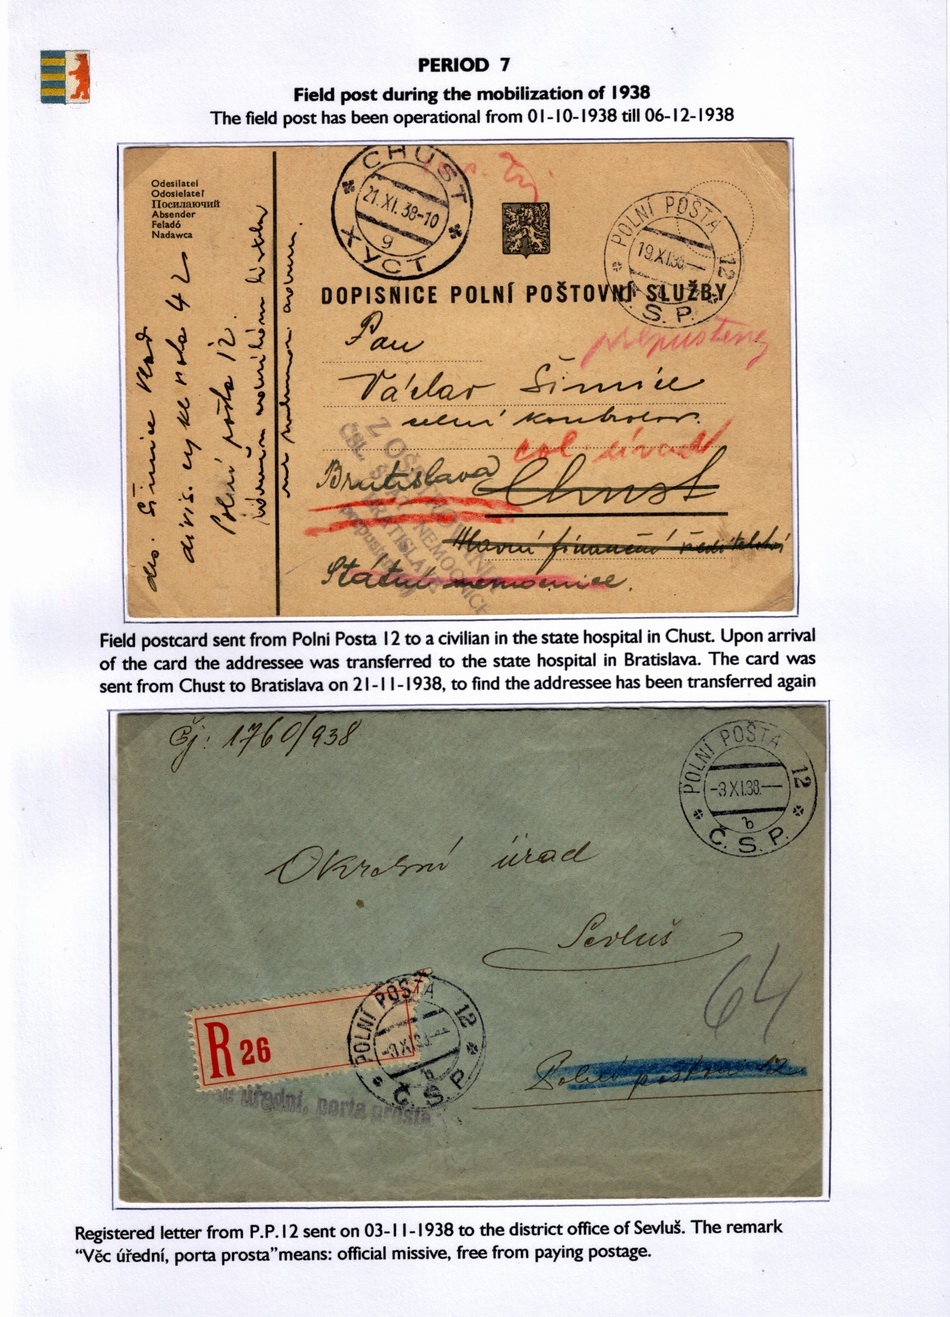 PERIOD 7
Field post during the mobilization of 1938
The field post has been operational from 01-10-1938 till 06-12-1938
Odesílatel
Odosielateľ
Посилаючий
Absender
Feladó
Nadawca
CHUST
21.XI.38-10
9
ХУСТ
POLNÍ POŠTA 12
19.XI.38
Č.S.P.
DOPISNICE POLNÍ POŠTOVNÍ SLUŽBY
Pan
Václav Šimice
celní kontrolor
Bratislava
Chust
Hlavní finanční ředitelství
Státní nemocnice.
des. Šimice
Polní pošta 12.
ČSL. STÁT. NEMOCNICE
BRATISLAVA
Field postcard sent from Polni Posta 12 to a civilian in the state hospital in Chust. Upon arrival
of the card the addressee was transferred to the state hospital in Bratislava. The card was
sent from Chust to Bratislava on 21-11-1938, to find the addressee has been transferred again
Čj: 1760/938
POLNÍ POŠTA 12
-3.XI.38.-
b
Č.S.P.
Okresní úřad
Sevluš
64
R 26
POLNÍ POŠTA 12
-3.XI.38.-
b
Č.S.P.
úřední, porta prosta
Polní pošta 12
Registered letter from P.P.12 sent on 03-11-1938 to the district office of Sevluš. The remark
“Věc úřední, porta prosta”means: official missive, free from paying postage.